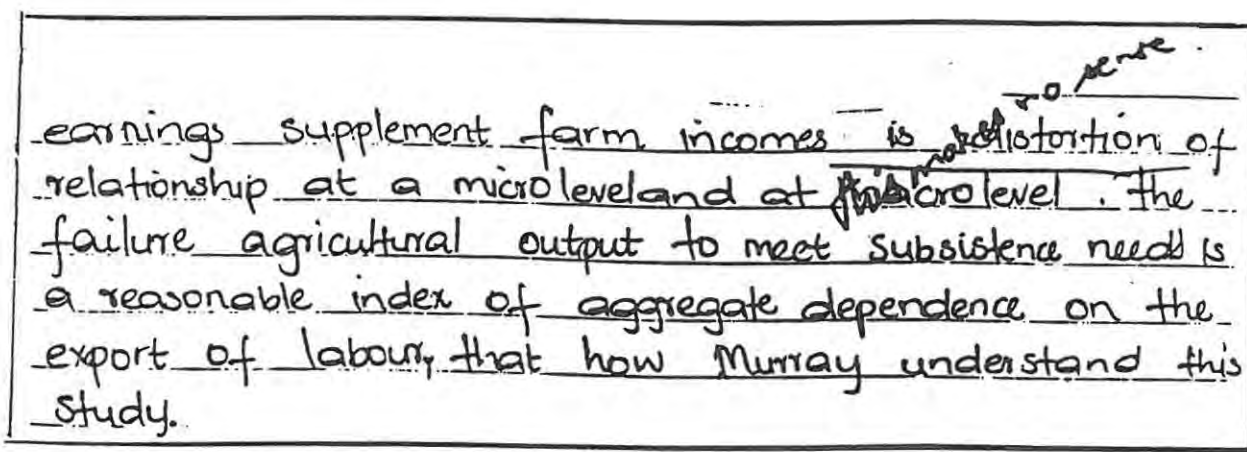 no sense.
earnings supplement farm incomes is distortion of
relationship at a micro leveland at macro level. the
failure agricultural output to meet subsistence needs is
a reasonable index of aggregate dependence on the
export of labour, that how Murray understand this
study.